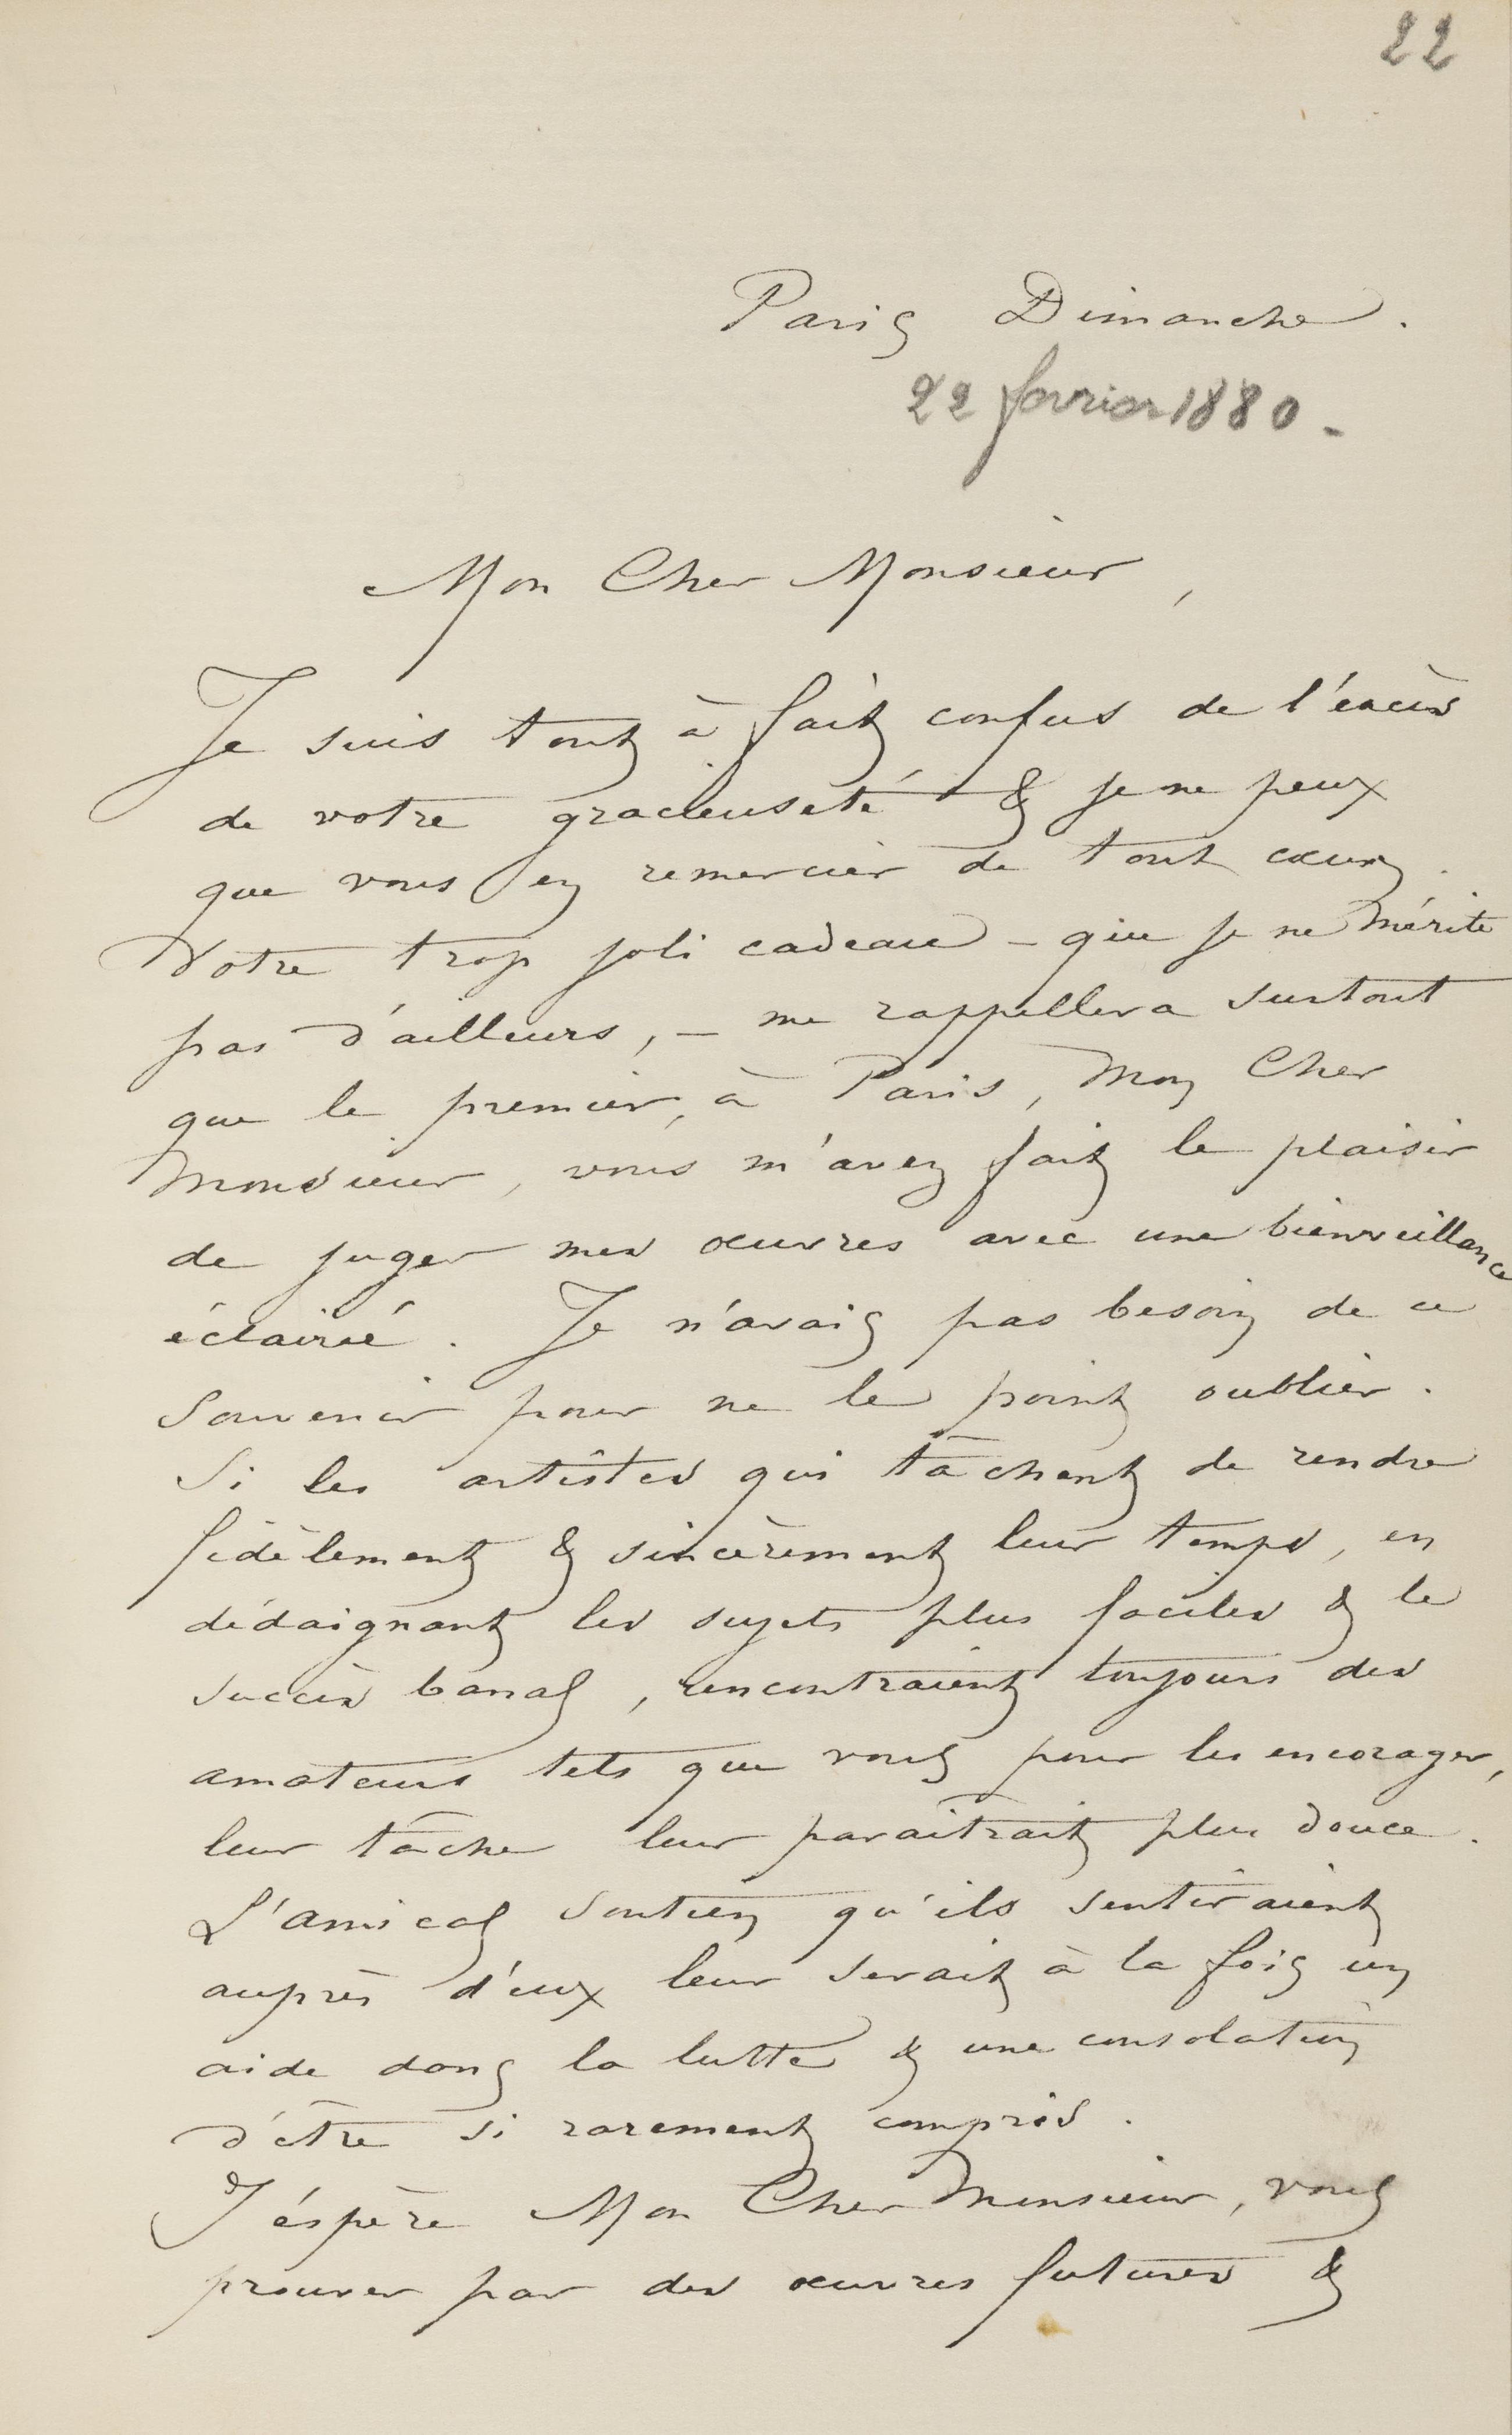 22
Paris Dimanche.
22 fevrier 1880.
Mon Cher Monsieur,
Je suis tout à fait confus de l'éxcès
de votre gracieuseté & je ne peux
que vous en remercier de tout cœur.
Votre trop joli cadeau - que je ne mérite
pas d'ailleurs, - me rappellera surtout
que le premier, à Paris, Mon Cher
Monsieur, vous m'avez fait le plaisir
de juger mes œuvres avec une bienveillance
éclairée. Je n'avais pas besoin de ce
souvenir pour ne le point oublier.
Si les artistes qui tâchent de rendre
fidèlement & sincèrement leur temps, en
dédaignant les sujets plus faciles & le
succès banal, rencontraient toujours des
amateurs tels que vous pour les encorager,
leur tâche leur paraîtrait plus douce.
L'amical soutien qu'ils sentiraient
auprès d'eux leur serait à la fois un
aide dans la lutte & une consolation
d'être si rarement compris.
J'éspère Mon Cher Monsieur, vous
prouver par des œuvres futures &